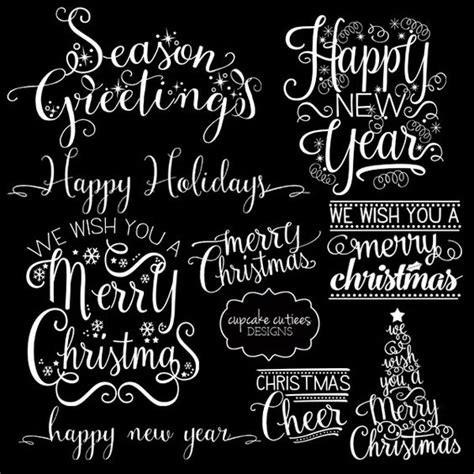 Season
Greetings
Happy
NEW
Year
Happy Holidays
WE WISH YOU A
Merry
Christmas
merry
Christmas
WE WISH YOU A
merry
christmas
cupcake cutiees
DESIGNS
CHRISTMAS
Cheer
we
wish
you a
Merry
Christmas
happy new year